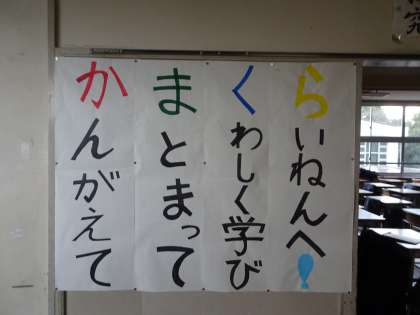 かんがえて
まとまって
くわしく学び
らいねんへ!